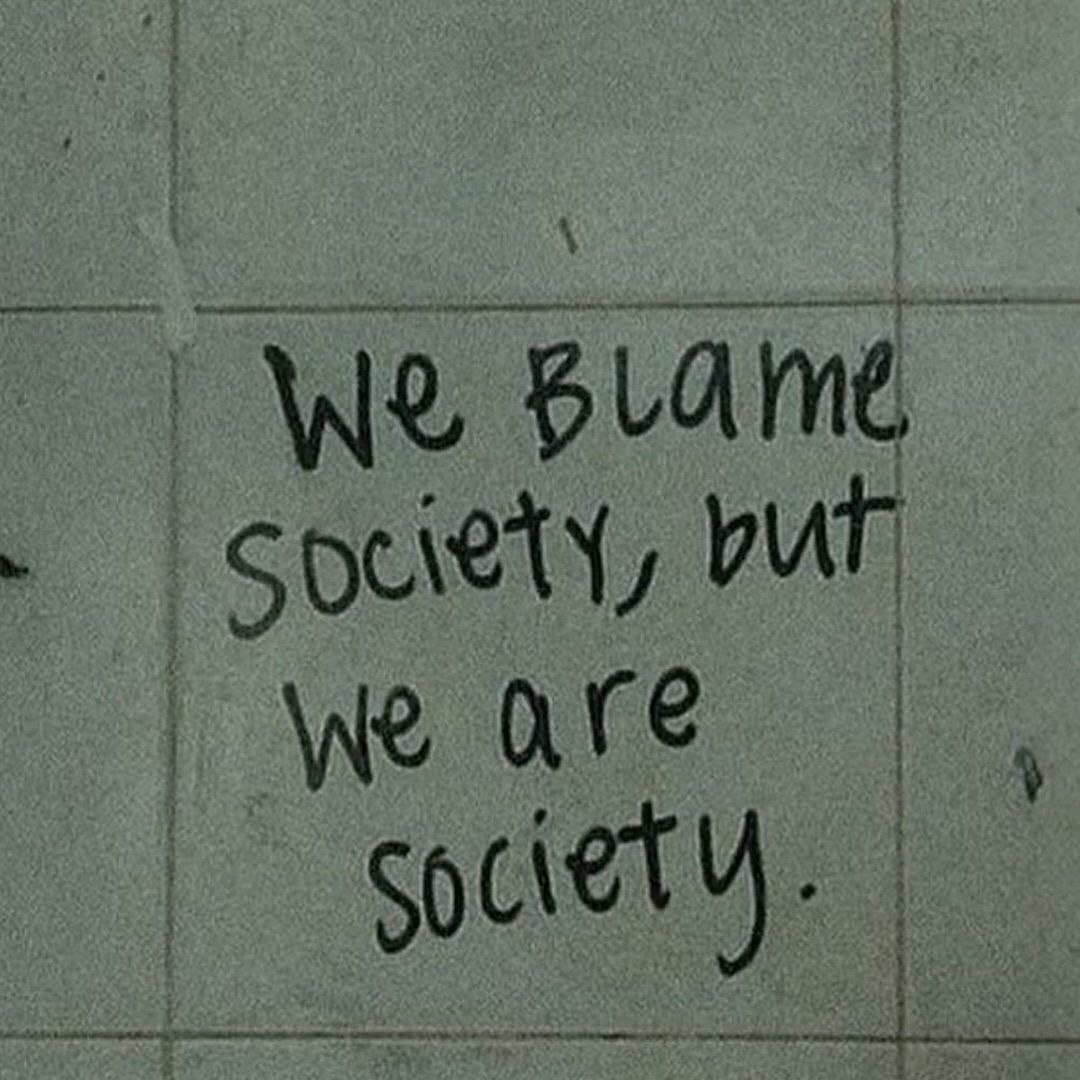 We Blame
society, but
We are
society.